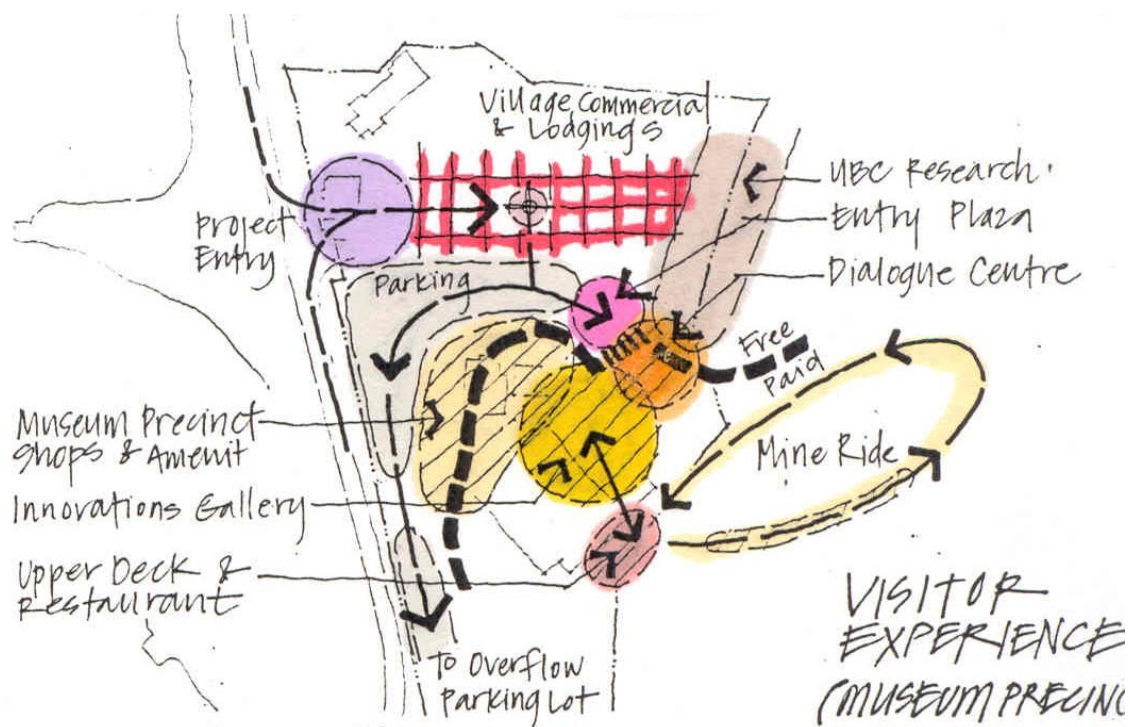 Village Commercial
& Lodgings
UBC Research
Project
Entry
Entry Plaza
Parking
Dialogue Centre
Free
Paid
Museum Precinct
Shops & Amenit
Mine Ride
Innovations Gallery
Upper Deck &
Restaurant
To Overflow
Parking Lot
VISITOR
EXPERIENCE
(MUSEUM PRECINC